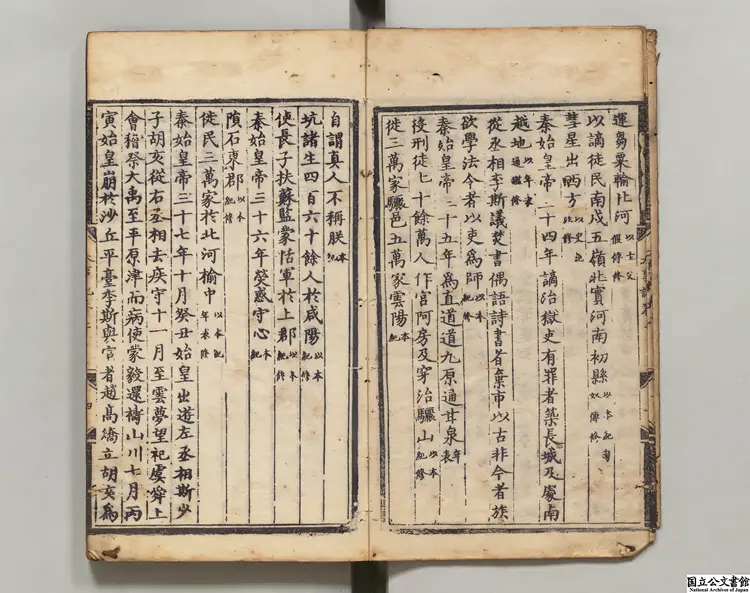 運芻粟輸北河以主父偃傳修
以謫徙民南戍五嶺北實河南初縣以本紀匈奴傳修
彗星出西方以史記修
秦始皇帝三十四年謫治獄吏有罪者築長城及處南
越地以年表通鑑修
從丞相李斯議焚書偶語詩書者棄市以古非今者族
欲學法令者以吏爲師以本紀修
秦始皇帝三十五年爲直道道九原通甘泉年表
役刑徒七十餘萬人作宮阿房及穿治驪山以本紀修
徙三萬家驪邑五萬家雲陽本紀
自謂真人不稱朕本紀
坑諸生四百六十餘人於咸陽以本紀
使長子扶蘇監蒙恬軍於上郡以本紀修
秦始皇帝三十六年熒惑守心本紀
隕石東郡以本紀修
徙民三萬家於北河榆中以本紀年表修
秦始皇帝三十七年十月癸丑始皇出遊左丞相斯少
子胡亥從右丞相去疾守十一月至雲夢望祀虞舜上
會稽祭大禹至平原津而病使蒙毅還禱山川七月丙
寅始皇崩於沙丘平臺李斯與宦者趙高矯立胡亥爲
四
国立公文書館
National Archives of Japan